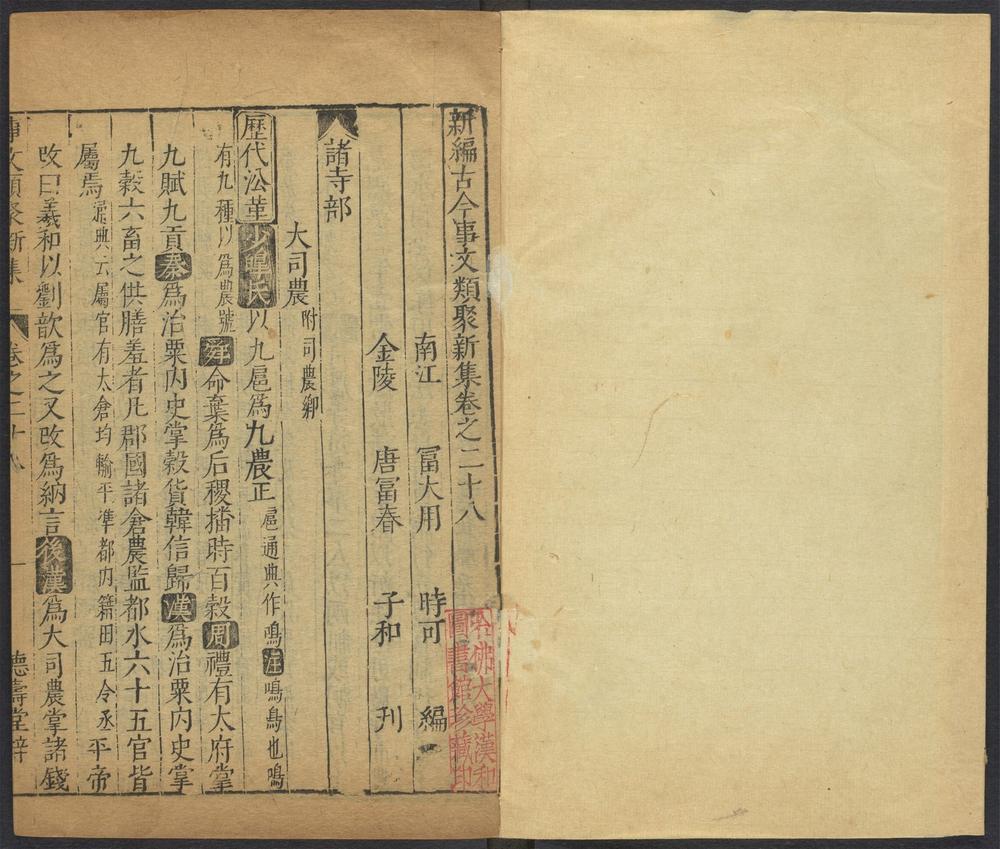 新編古今事文類聚新集卷之二十八
南江 冨大用 時可 編
金陵 唐冨春 子和 刋
諸寺部
大司農 附司農卿
歷代沿革 少皡氏以九扈爲九農正 扈通典作鳸注鳸鳥也鳸
有九種以爲農號 舜命棄爲后稷播時百穀周禮有太府掌
九賦九貢秦爲治粟内史掌穀貨韓信歸漢爲治粟内史掌
九穀六畜之供膳羞者凡郡國諸倉農監都水六十五官皆
屬焉 通典云屬官有太倉均輸平準都内籍田五令丞 平帝
改曰羲和以劉歆爲之又改爲納言後漢爲大司農掌諸錢
事文類聚新集 卷之二十八 一 德壽堂梓
哈佛大學漢和
圖書館珍藏印